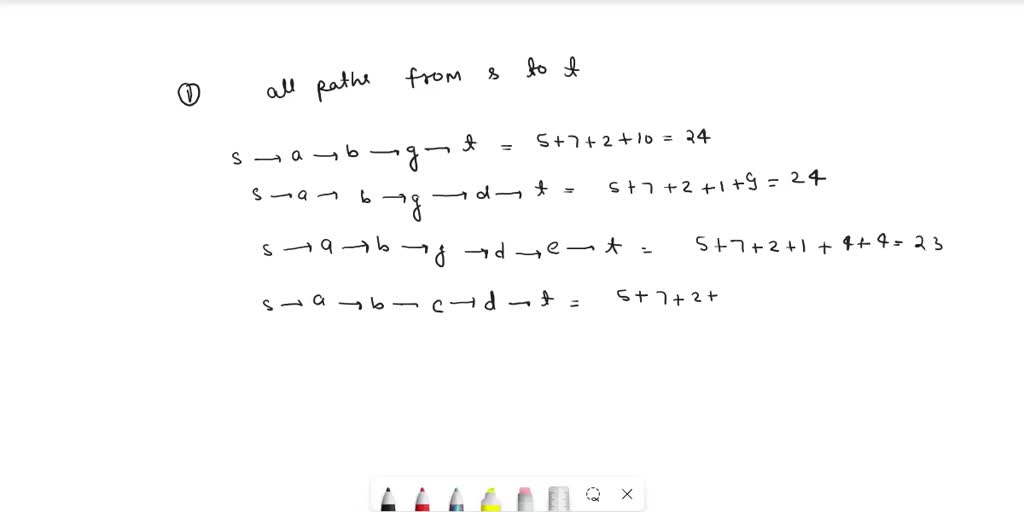 ① all paths from s to t
s → a → b → g → t = 5+7+2+10 = 24
s → a → b → g → d → t = 5+7+2+1+9 = 24
s → a → b → g → d → e → t = 5+7+2+1+4+4 = 23
s → a → b — c → d → t = 5+7+2+